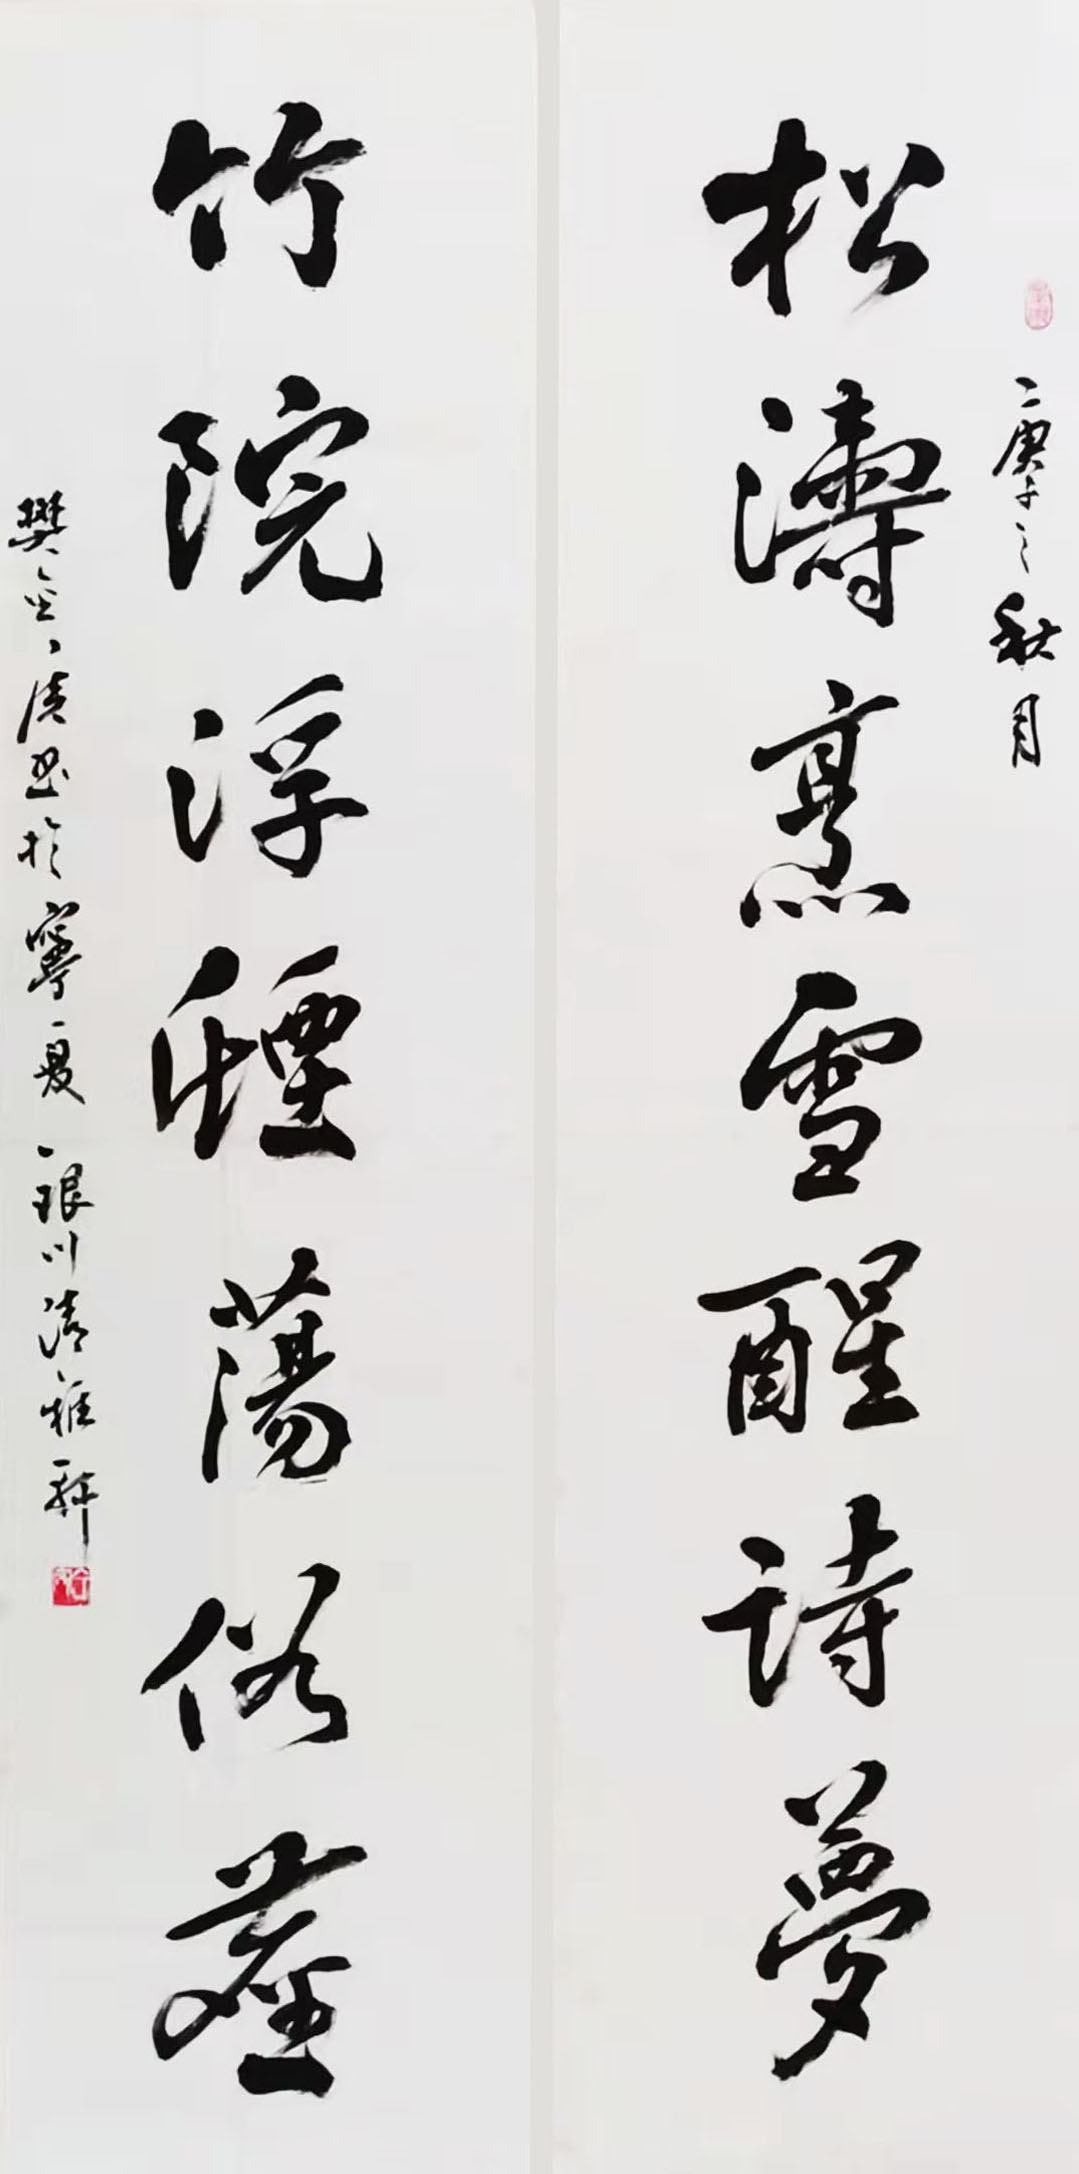 庚子之秋月
松濤烹雪醒詩夢
竹院浮煙蕩俗塵
樊金廣書於寧夏銀川清雅軒